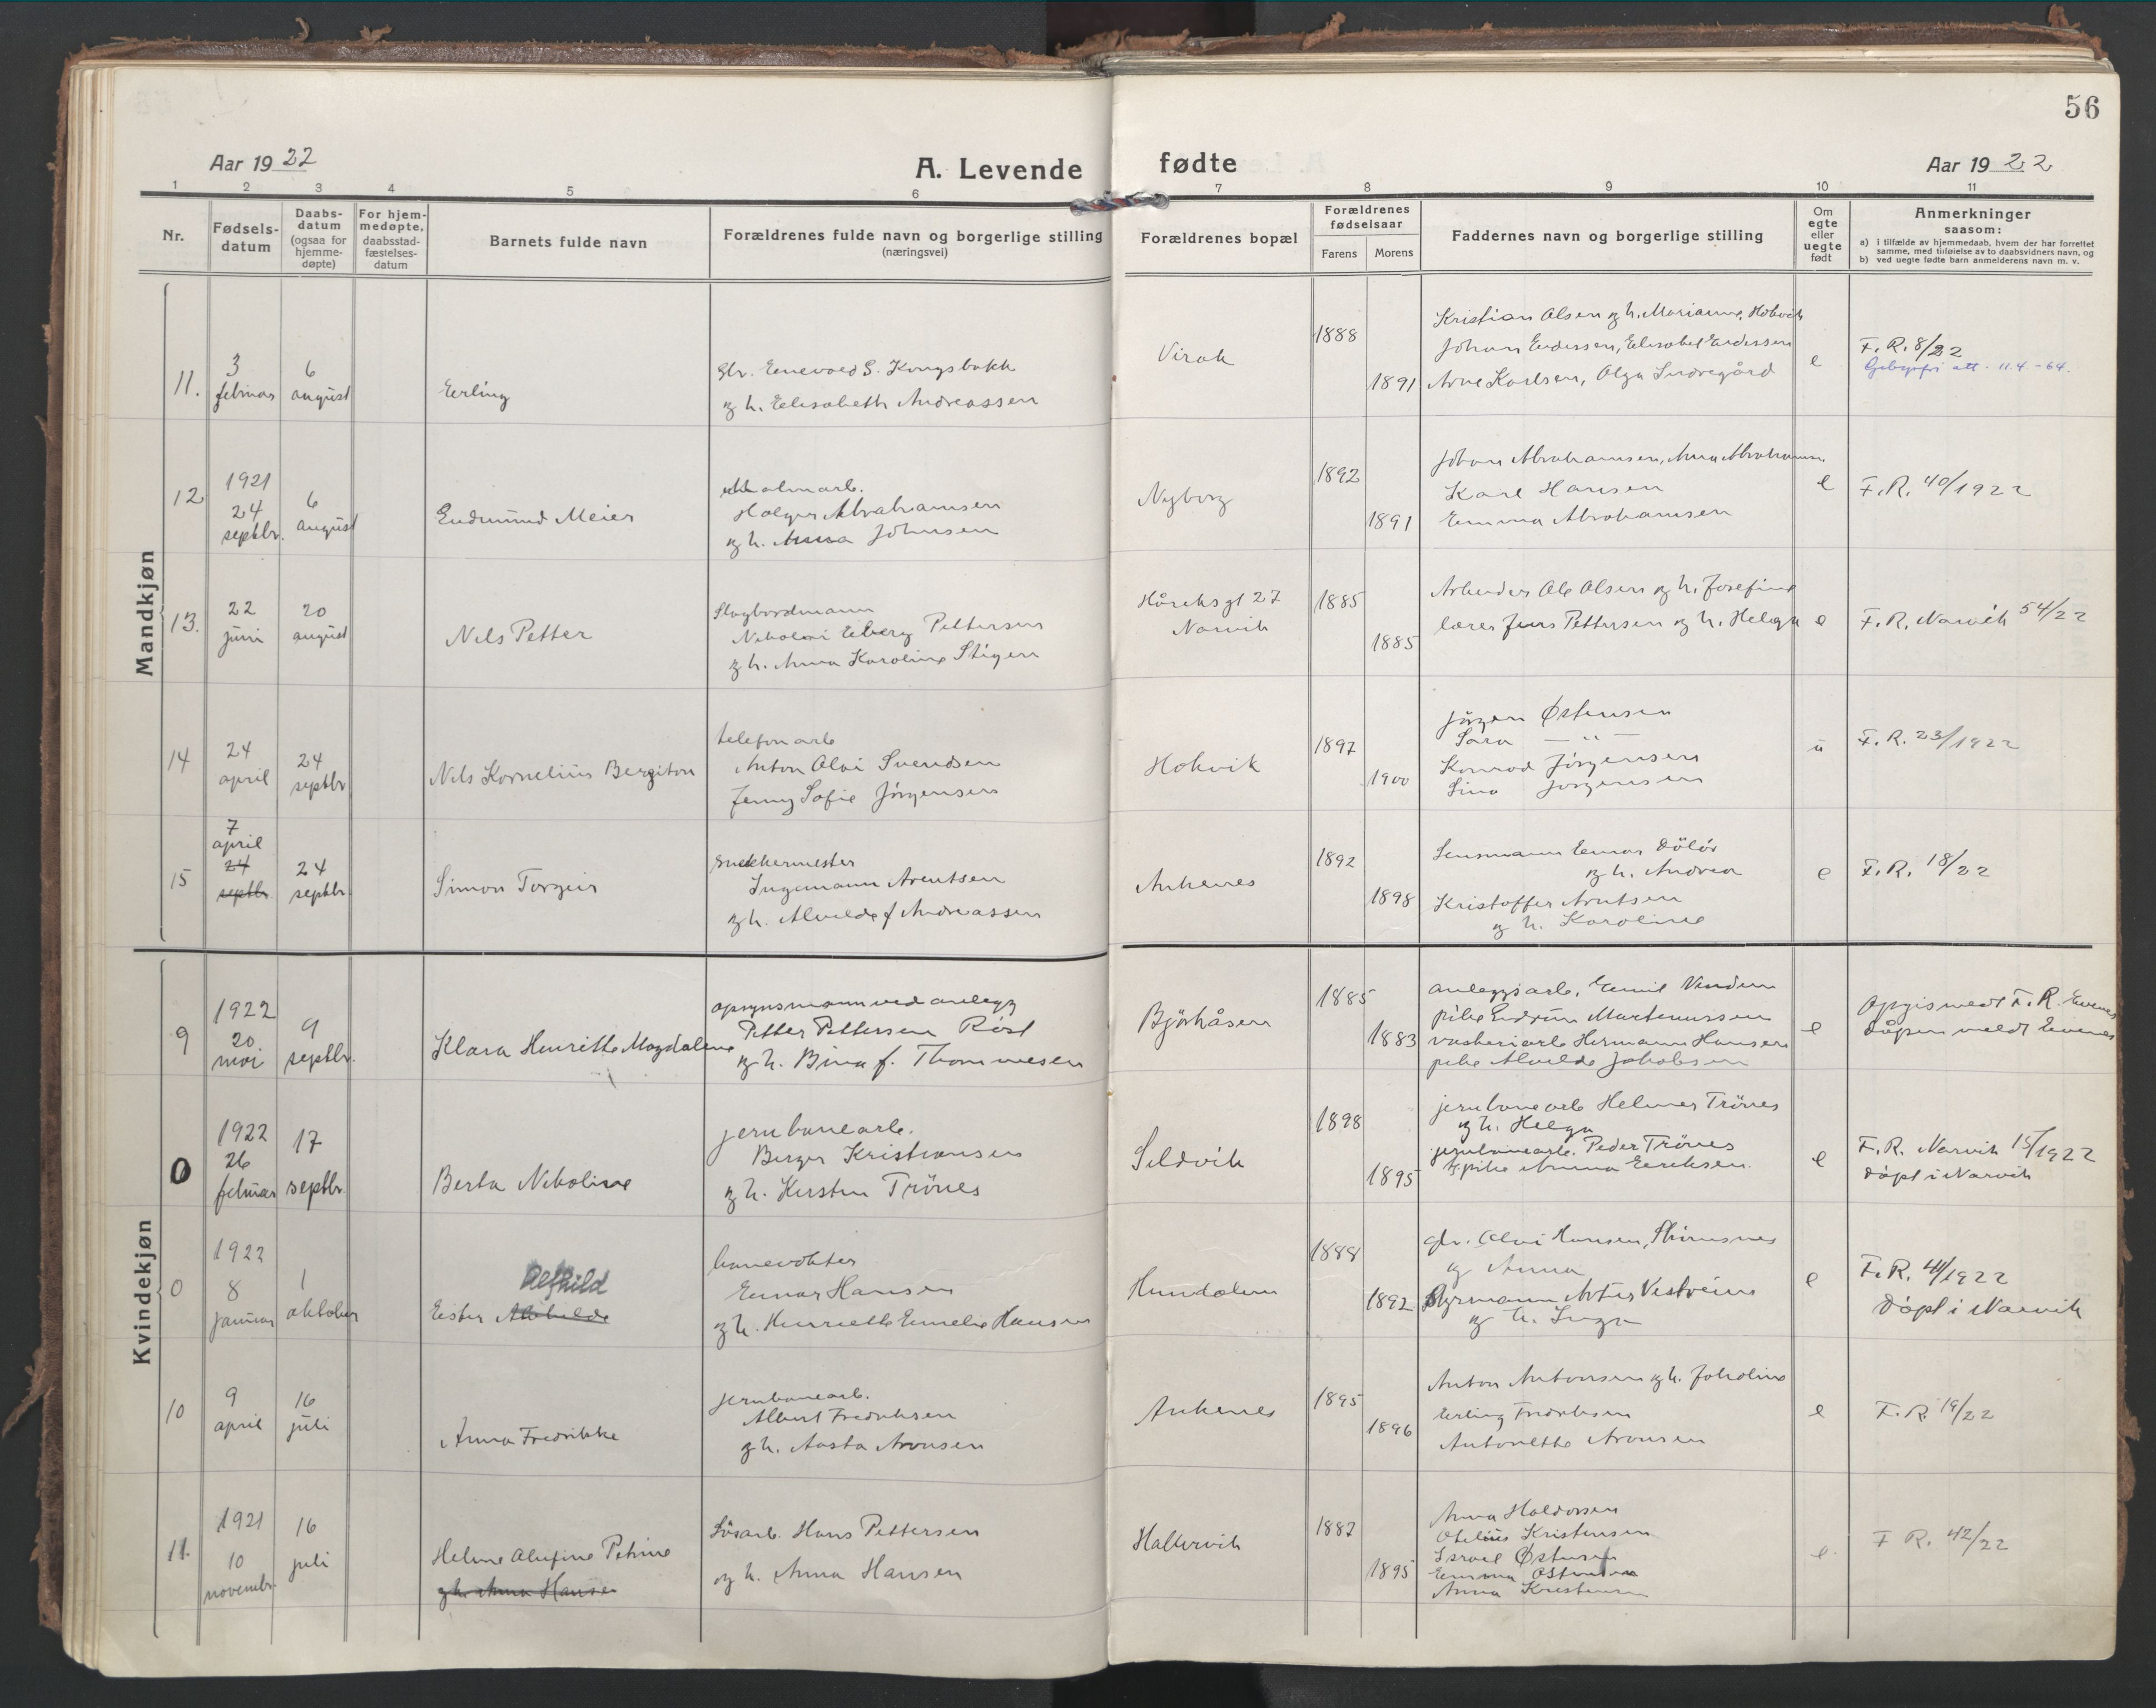 56
Aar 1922
A. Levende fødte
Aar 1922
1 2 3 4 5 6 7 8 9 10 11
Nr.
Fødsels-
datum
Daabs-
datum
(ogsaa for
hjemme-
døpte)
For hjem-
medøpte,
daabsstad-
fæstelses-
datum
Barnets fulde navn
Forældrenes fulde navn og borgerlige stilling
(næringsvei)
Forældrenes bopæl
Forældrenes
fødselsaar
Farens Morens
Faddernes navn og borgerlige stilling
Om
egte
eller
uegte
født
Anmerkninger
saasom:
a) i tilfælde av hjemmedaab, hvem der har forrettet
samme, med tilføielse av to daabsvidners navn, og
b) ved uegte fødte barn anmelderens navn m. v.
Mandkjøn
11.
3
februar
6
august
Erling
Gbr. Enevold S. Kongsbakk
og h. Elisabeth Andreassen
Virak
1888
1891
Kristian Olsen og h. Marianne, Hokvik
Johan Endressen, Elisabet Endressen
Arne Karlsen, Olga
e
F. R. 8/22
att. 11.4.-64.
12
1921
24
septbr.
6
august
Edmund Meier
malmarb.
Holger Abrahamsen
og h. Anna Johnsen
Nyborg
1892
1891
Johan Abrahamsen, Anna Abrahamsen
Karl Hansen
Emma Abrahamsen
e
F. R. 40/1922
13.
22
juni
20
august
Nils Petter
Nikolai Eberg Pettersen
og h. Anna Karoline Stigen
Håreksgt 27
Narvik
1885
1885
Arbeider Ole Olsen og h. Josefine
lærer Jens Pettersen og h. Helga
e
F. R. Narvik 54/22
14
24
april
24
septbr
Nils Kornelius Bergiton
telefonarb
Anton Olai Svendsen
Jenny Sofie Jørgensen
Hokvik
1897
1900
Jørgen Østensen
Sara — " —
Konrad Jörgensen
Lina Jørgensen
u
F. R. 23/1922
15
7
april
24
septbr
24
septbr.
Simon Torgeir
snekkermester
Ingemann Arentsen
og h. Alvilde f Andreassen
Ankenes
1892
1898
Lensmann Einar Dölör
og h. Andrea
Kristoffer Arntsen
og h. Karoline
e
F. R. 18/22
Kvindekjøn
9
1922
20
mai
9
septbr.
Klara Henrikke Magdalene
opsynsmann ved anlegg
Petter Pettersen Röst
og h. Bina f. Thommesen
Björkåsen
1885
1883
anleggsarb. Emil
pike Gudrun Martinussen
vaskeriarb Hermann Hansen
pike Alvilde Jakobsen
e
Opgis meldt F. R. Evenes
Dåpen meldt Evenes
0
1922
26
februar
17
septbr.
Berta Nikoline
jernbanearb.
Berger Kristiansen
og h. Kirsten Trönes
Sildvik
1898
1895
jernbanearb Helmer Trönes
og h. Helga
jernbanearb. Peder Trönes
pike Anna Eriksen.
e
F. R. Narvik 15/1922
Döpt i Narvik
0
1922
8
januar
1
oktober
Alfhild
Ester Alvhilde
banevokter
Einar Hansen
og h. Henriette Emelie Hansen
Hundalen
1888
1892
gbr. Olai Hansen,
og Anna
Artur
og h. Inga
e
F. R. 41/1922
Döpt i Narvik
10
9
april
16
juli
Anna Fredrikke
jernbanearb.
Albert Fredriksen
og h. Aasta Aronsen
Ankenes
1895
1896
Anton Antonsen og h. Jakobine
Erling Fredriksen
Antonette Aronsen
e
F. R. 19/22
11.
1921
10
novembr.
16
juli
Helene Petrine
og h. Anna Hansen
Hans Pettersen
og h. Anna Hansen
Haltvik
1887
1895
Anna Haldorsen
Otelius Kristensen
Israel Østensen
Emma Østensen
Anna Kristensen
e.
F R. 42/22